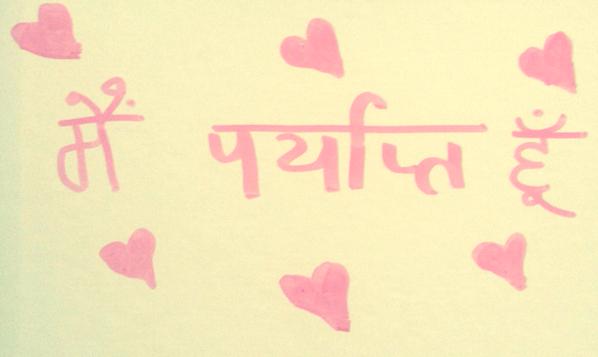 मैं पर्याप्त हूँ